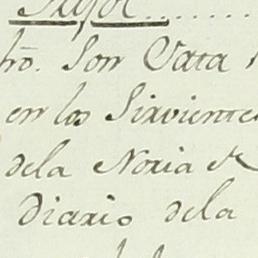 hõ. Son Cata
en los Sirviente
dela Noria &
Diario dela